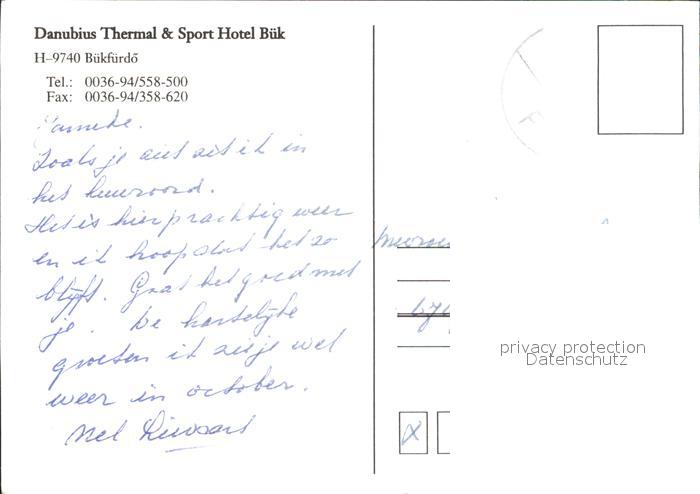 Danubius Thermal & Sport Hotel Bük
H–9740 Bükfürdő
Tel.: 0036-94/558-500
Fax: 0036-94/358-620
Janneke.
Zoals je ziet zit ik in
het kuuroord.
Het is hier prachtig weer
en ik hoop dat het zo
blijft. Gaat het goed met
je. De hartelijke
groeten ik zie je wel
weer in october.
Nel
privacy protection
Datenschutz
X